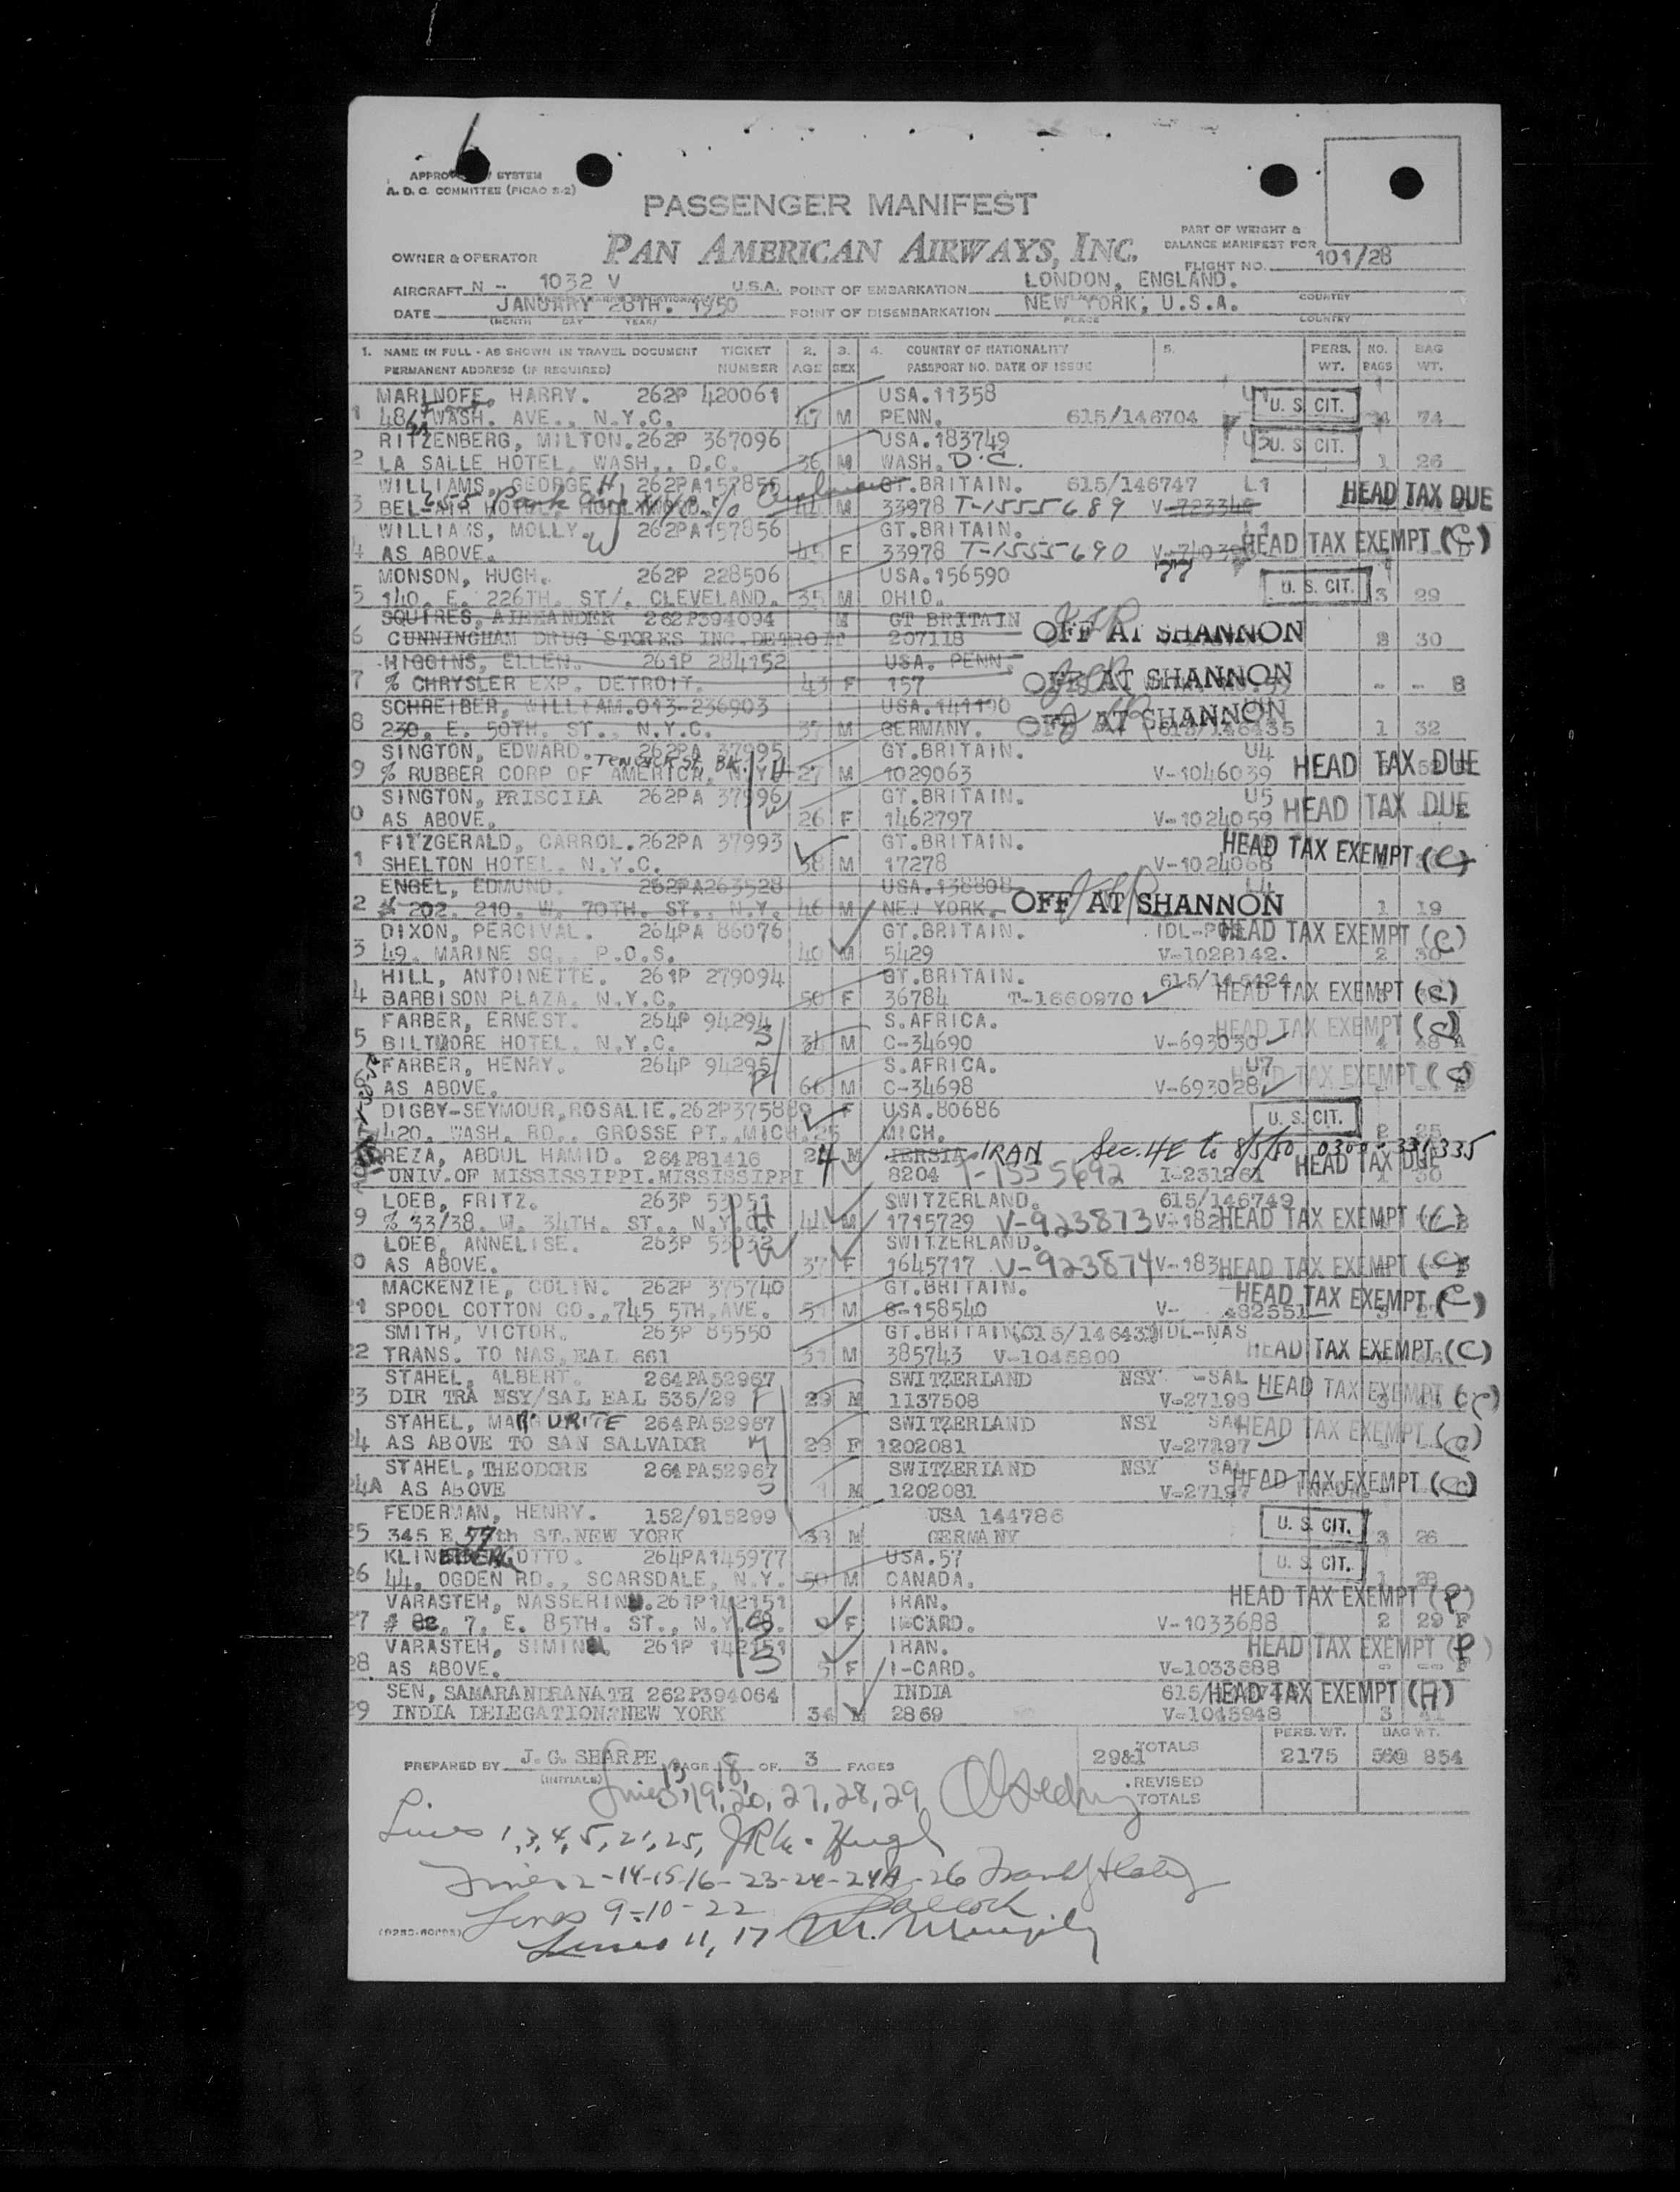 APPROVED BY SYSTEM
A. D. C. COMMITTEE (PICAO R-2)
PASSENGER MANIFEST
PAN AMERICAN AIRWAYS, INC.
PART OF WEIGHT &
BALANCE MANIFEST FOR
FLIGHT NO. 101/28
OWNER & OPERATOR
AIRCRAFT N - 1032 V U.S.A. POINT OF EMBARKATION LONDON, ENGLAND.
DATE JANUARY 28TH. 1950 POINT OF DISEMBARKATION NEW YORK; U.S.A.
(MONTH DAY YEAR) PLACE COUNTRY
1. NAME IN FULL - AS SHOWN IN TRAVEL DOCUMENT TICKET 2. 3. 4. COUNTRY OF NATIONALITY 5. PERS. NO. BAG
PERMANENT ADDRESS (IF REQUIRED) NUMBER AGE SEX PASSPORT NO. DATE OF ISSUE WT. BAGS WT.
MARINOFF, HARRY. 262P 420061 USA.11358
1 486 WASH. AVE., N.Y.C. 47 M PENN. 615/146704 U.S. CIT. 74
RITZENBERG, MILTON. 262P 367096 USA.183749
2 LA SALLE HOTEL, WASH., D.C. 36 M WASH. D.C. U.S. CIT. 1 26
WILLIAMS, GEORGE H 262PA157855 GT.BRITAIN. 615/146747 L1
3 BEL-AIR HOTEL 655 Park Ave M 33978 T-1555689 HEAD TAX DUE
WILLIAMS, MOLLY. W 262PA157856 GT.BRITAIN. L1
4 AS ABOVE. 45 F 33978 T-1555690 HEAD TAX EXEMPT (C)
MONSON, HUGH. 262P 228506 USA.156590 77
5 140. E. 226TH. ST/. CLEVELAND. 35 M OHIO. U.S. CIT. 3 29
SQUIRES, 262P394094 M GT BRITAIN
6 CUNNINGHAM DRUG STORES INC. DETROIT 207118 OFF AT SHANNON 2 30
HIGGINS, ELLEN. 261P 284152 USA. PENN.
7 % CHRYSLER EXP. DETROIT. 43 F 157 OFF AT SHANNON - -- B
SCHREIBER, WILLIAM. 013-236903 USA.141190
8 230. E. 50TH. ST., N.Y.C. 37 M GERMANY. OFF AT SHANNON 615/146435 1 32
SINGTON, EDWARD. 262PA 37995 GT.BRITAIN. U4
9 % RUBBER CORP OF AMERICA, N.Y. H 27 M 1029063 V-1046039 HEAD TAX DUE
SINGTON, PRISCILA 262PA 37996 GT.BRITAIN. U5
0 AS ABOVE. W 26 F 1462797 V-1024059 HEAD TAX DUE
FITZGERALD, CARROL. 262PA 37993 GT.BRITAIN.
1 SHELTON HOTEL. N.Y.C. 38 M 17278 V-1024068 HEAD TAX EXEMPT (C)
ENGEL, EDMUND. 262PA263528 USA.138808 L4
2 % 202. 210. W. 70TH. ST., N.Y. 46 M NEW YORK. OFF AT SHANNON 1 19
DIXON, PERCIVAL. 264PA 86076 GT.BRITAIN. IDL-POS HEAD TAX EXEMPT (C)
3 49. MARINE SQ., P.O.S. 40 M 5429 V-1028142. 2 30
HILL, ANTOINETTE. 261P 279094 GT.BRITAIN. 615/146424
4 BARBISON PLAZA. N.Y.C. 50 F 36784 T-1660970 HEAD TAX EXEMPT (C)
FARBER, ERNEST. 264P 94294 S.AFRICA.
5 BILTMORE HOTEL. N.Y.C. S 31 M C-34690 V-693030 HEAD TAX EXEMPT (C) 4 48 A
FARBER, HENRY. 264P 94295 S.AFRICA. U7
AS ABOVE. 66 M C-34698 V-693028 HEAD TAX EXEMPT (C)
DIGBY-SEYMOUR, ROSALIE. 262P375889 F USA.80686
420. WASH. RD., GROSSE PT. MICH. 25 MICH. U.S. CIT. 2 25
REZA, ABDUL HAMID. 264P81416 24 M PERSIA IRAN Sec. 4E to 8/5/50 0300-331335
UNIV. OF MISSISSIPPI. MISSISSIPPI 8204 T-1555692 I-231261 HEAD TAX DUE 1 30
LOEB, FRITZ. 263P 53951 SWITZERLAND. 615/146749
9 % 33/38. W. 34TH. ST., N.Y.C. H 44 M 1715729 V-923873 V-182 HEAD TAX EXEMPT (C)
LOEB, ANNELISE. 263P 53932 SWITZERLAND.
0 AS ABOVE. W 37 F 1645717 V-923874 V-183 HEAD TAX EXEMPT (C)
MACKENZIE, COLIN. 262P 375740 GT.BRITAIN.
21 SPOOL COTTON CO., 745 5TH. AVE. 51 M C-158540 V- 482551 HEAD TAX EXEMPT (C)
SMITH, VICTOR. 263P 85550 GT.BRITAIN. IDL-NAS
22 TRANS. TO NAS, EAL 661 31 M 385743 V-1045800 HEAD TAX EXEMPT (C)
STAHEL, ALBERT. 264PA52967 SWITZERLAND NSY -SAL
23 DIR TRA NSY/SAL EAL 535/29 F 29 M 1137508 V-27198 HEAD TAX EXEMPT (C)
STAHEL, MARGURITE 264PA52967 SWITZERLAND NSY SAL
24 AS ABOVE TO SAN SALVADOR M 28 F 1202081 V-27197 HEAD TAX EXEMPT (C)
STAHEL, THEODORE 264PA52967 SWITZERLAND NSY SAL
24A AS ABOVE S 1 M 1202081 V-27197 HEAD TAX EXEMPT (C)
FEDERMAN, HENRY. 152/915299 USA 144786
25 345 E 57th ST. NEW YORK 33 M GERMANY U.S. CIT. 3 26
KLINEBERG OTTO. 264PA145977 USA.57
26 44. OGDEN RD., SCARSDALE, N.Y. 50 M CANADA. U.S. CIT.
VARASTEH, NASSERIN. 261P142151 IRAN. HEAD TAX EXEMPT (P)
27 7. E. 85TH. ST., N.Y. F I-CARD. V-1033688 2 29 F
VARASTEH, SIMIN 261P 142151 IRAN. HEAD TAX EXEMPT (P)
28 AS ABOVE. S 5 F I-CARD. V-1033688 - -- F
SEN, SAMARANDRANATH 262P394064 INDIA 615/ HEAD TAX EXEMPT (H)
29 INDIA DELEGATION. NEW YORK 34 M 2869 V-1045948 3 41
PREPARED BY J. G. SHARPE PAGE OF 3 PAGES 29&1 TOTALS PERS. WT. 2175 BAG WT. 56@ 854
(INITIALS) REVISED TOTALS
Lines 13, 18, 19, 20, 27, 28, 29
Lines 1, 3, 4, 5, 21, 25,
Lines 2-14-15-16-23-24-24A-26
Lines 9-10-22
Lines 11, 17